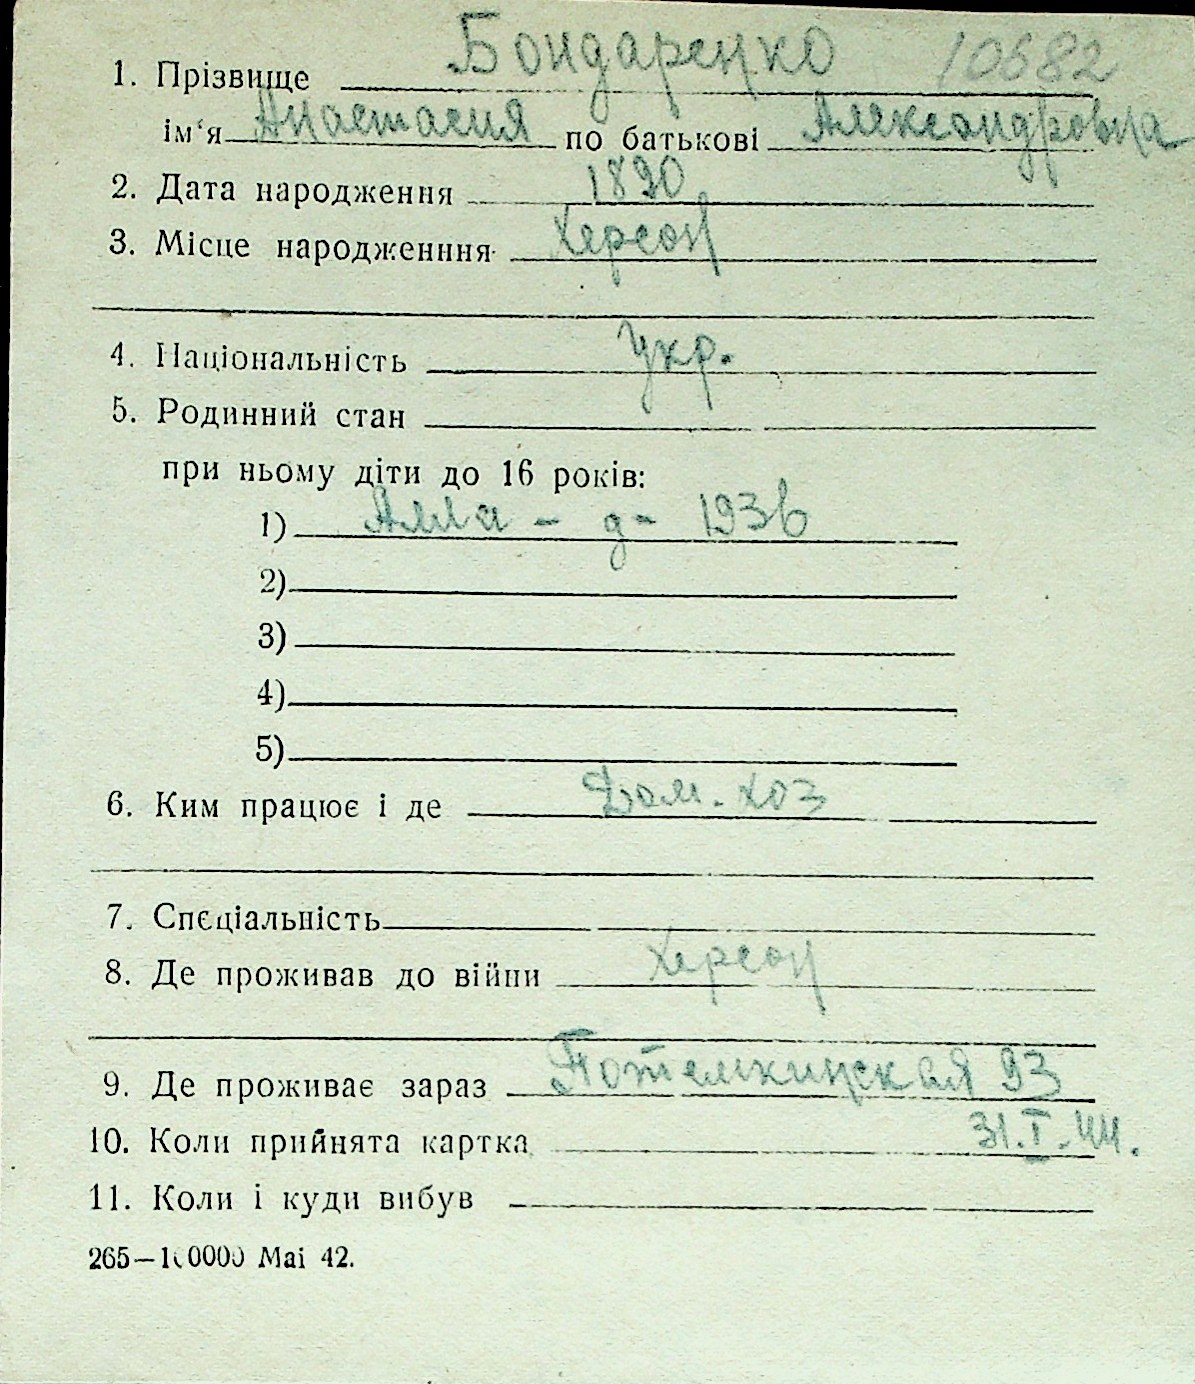 1. Прізвище Бондаренко 10682
ім‘я Анастасия по батькові Александровна
2. Дата народження 1890
3. Місце народженння Херсон
4. Національність Укр.
5. Родинний стан
при ньому діти до 16 років:
1) Алла - д- 1936
2)
3)
4)
5)
6. Ким працює і де Дом. хоз
7. Спєціальність
8. Де проживав до війни Херсон
9. Де проживає зараз Потемкинская 93
10. Коли прийнята картка 31.I.44.
11. Коли і куди вибув
265—100000 Mai 42.